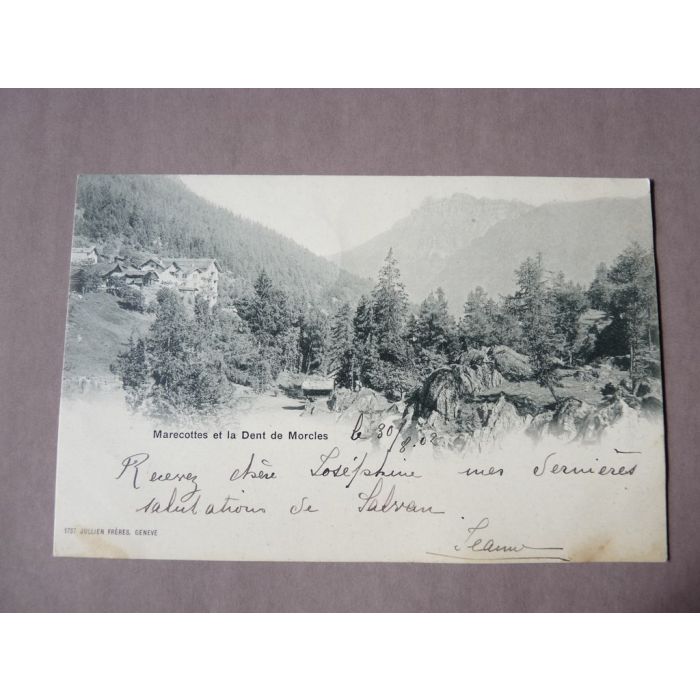 Marecottes et la Dent de Morcles
le 30/8.02
Recevez chère Joséphine mes dernières
salutations de Salvan
5757 JULLIEN FRÈRES, GENEVE
Jeanne